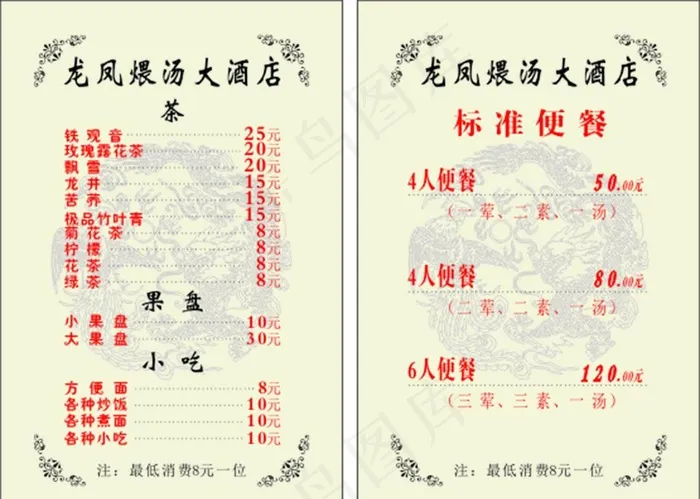 龙凤煨汤大酒店
茶
铁观音 25元
玫瑰露花茶 20元
飘雪 20元
龙井 15元
苦荞 15元
极品竹叶青 15元
菊花茶 8元
柠檬 8元
花茶 8元
绿茶 8元
果盘
小果盘 10元
大果盘 30元
小吃
方便面 8元
各种炒饭 10元
各种煮面 10元
各种小吃 10元
注：最低消费8元一位
龙凤煨汤大酒店
标准便餐
4人便餐 50.00元
（一荤、二素、一汤）
4人便餐 80.00元
（二荤、二素、一汤）
6人便餐 120.00元
（三荤、三素、一汤）
注：最低消费8元一位